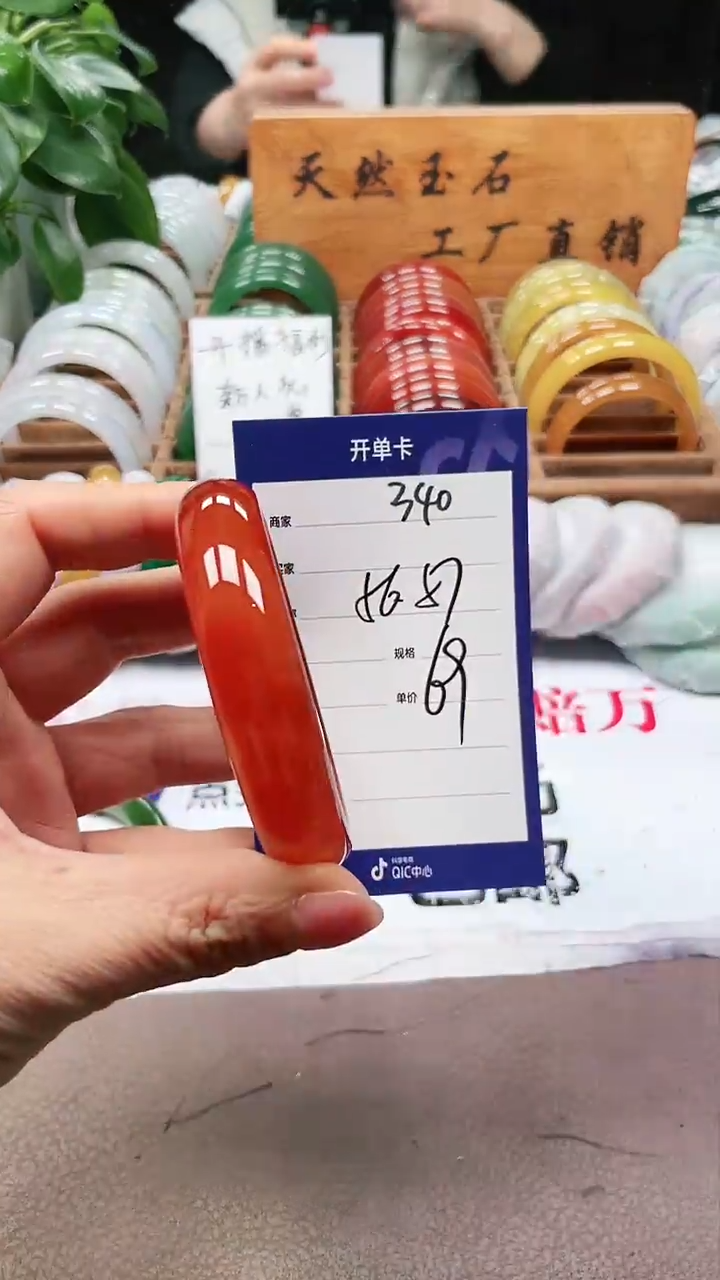 天然玉石
工厂直销
开播福利
新人礼
开单卡
340
商家
家
56.57
规格
69
单价
赔万
点
抖音电商
QIC中心